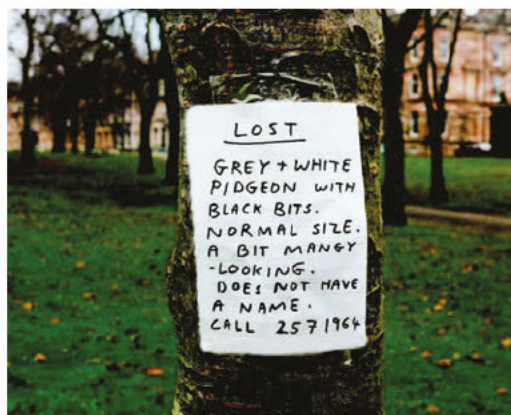 LOST
GREY + WHITE
PIDGEON WITH
BLACK BITS.
NORMAL SIZE.
A BIT MANGY
-LOOKING.
DOES NOT HAVE
A NAME.
CALL 2571964